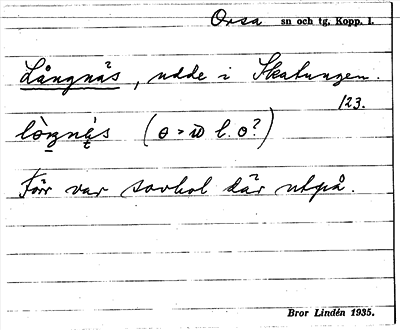 Orsa sn och tg. Kopp. l.
Långnäs, udde i Skatungen.
123.
Förr var sovhol där utpå.
Bror Lindén 1935.